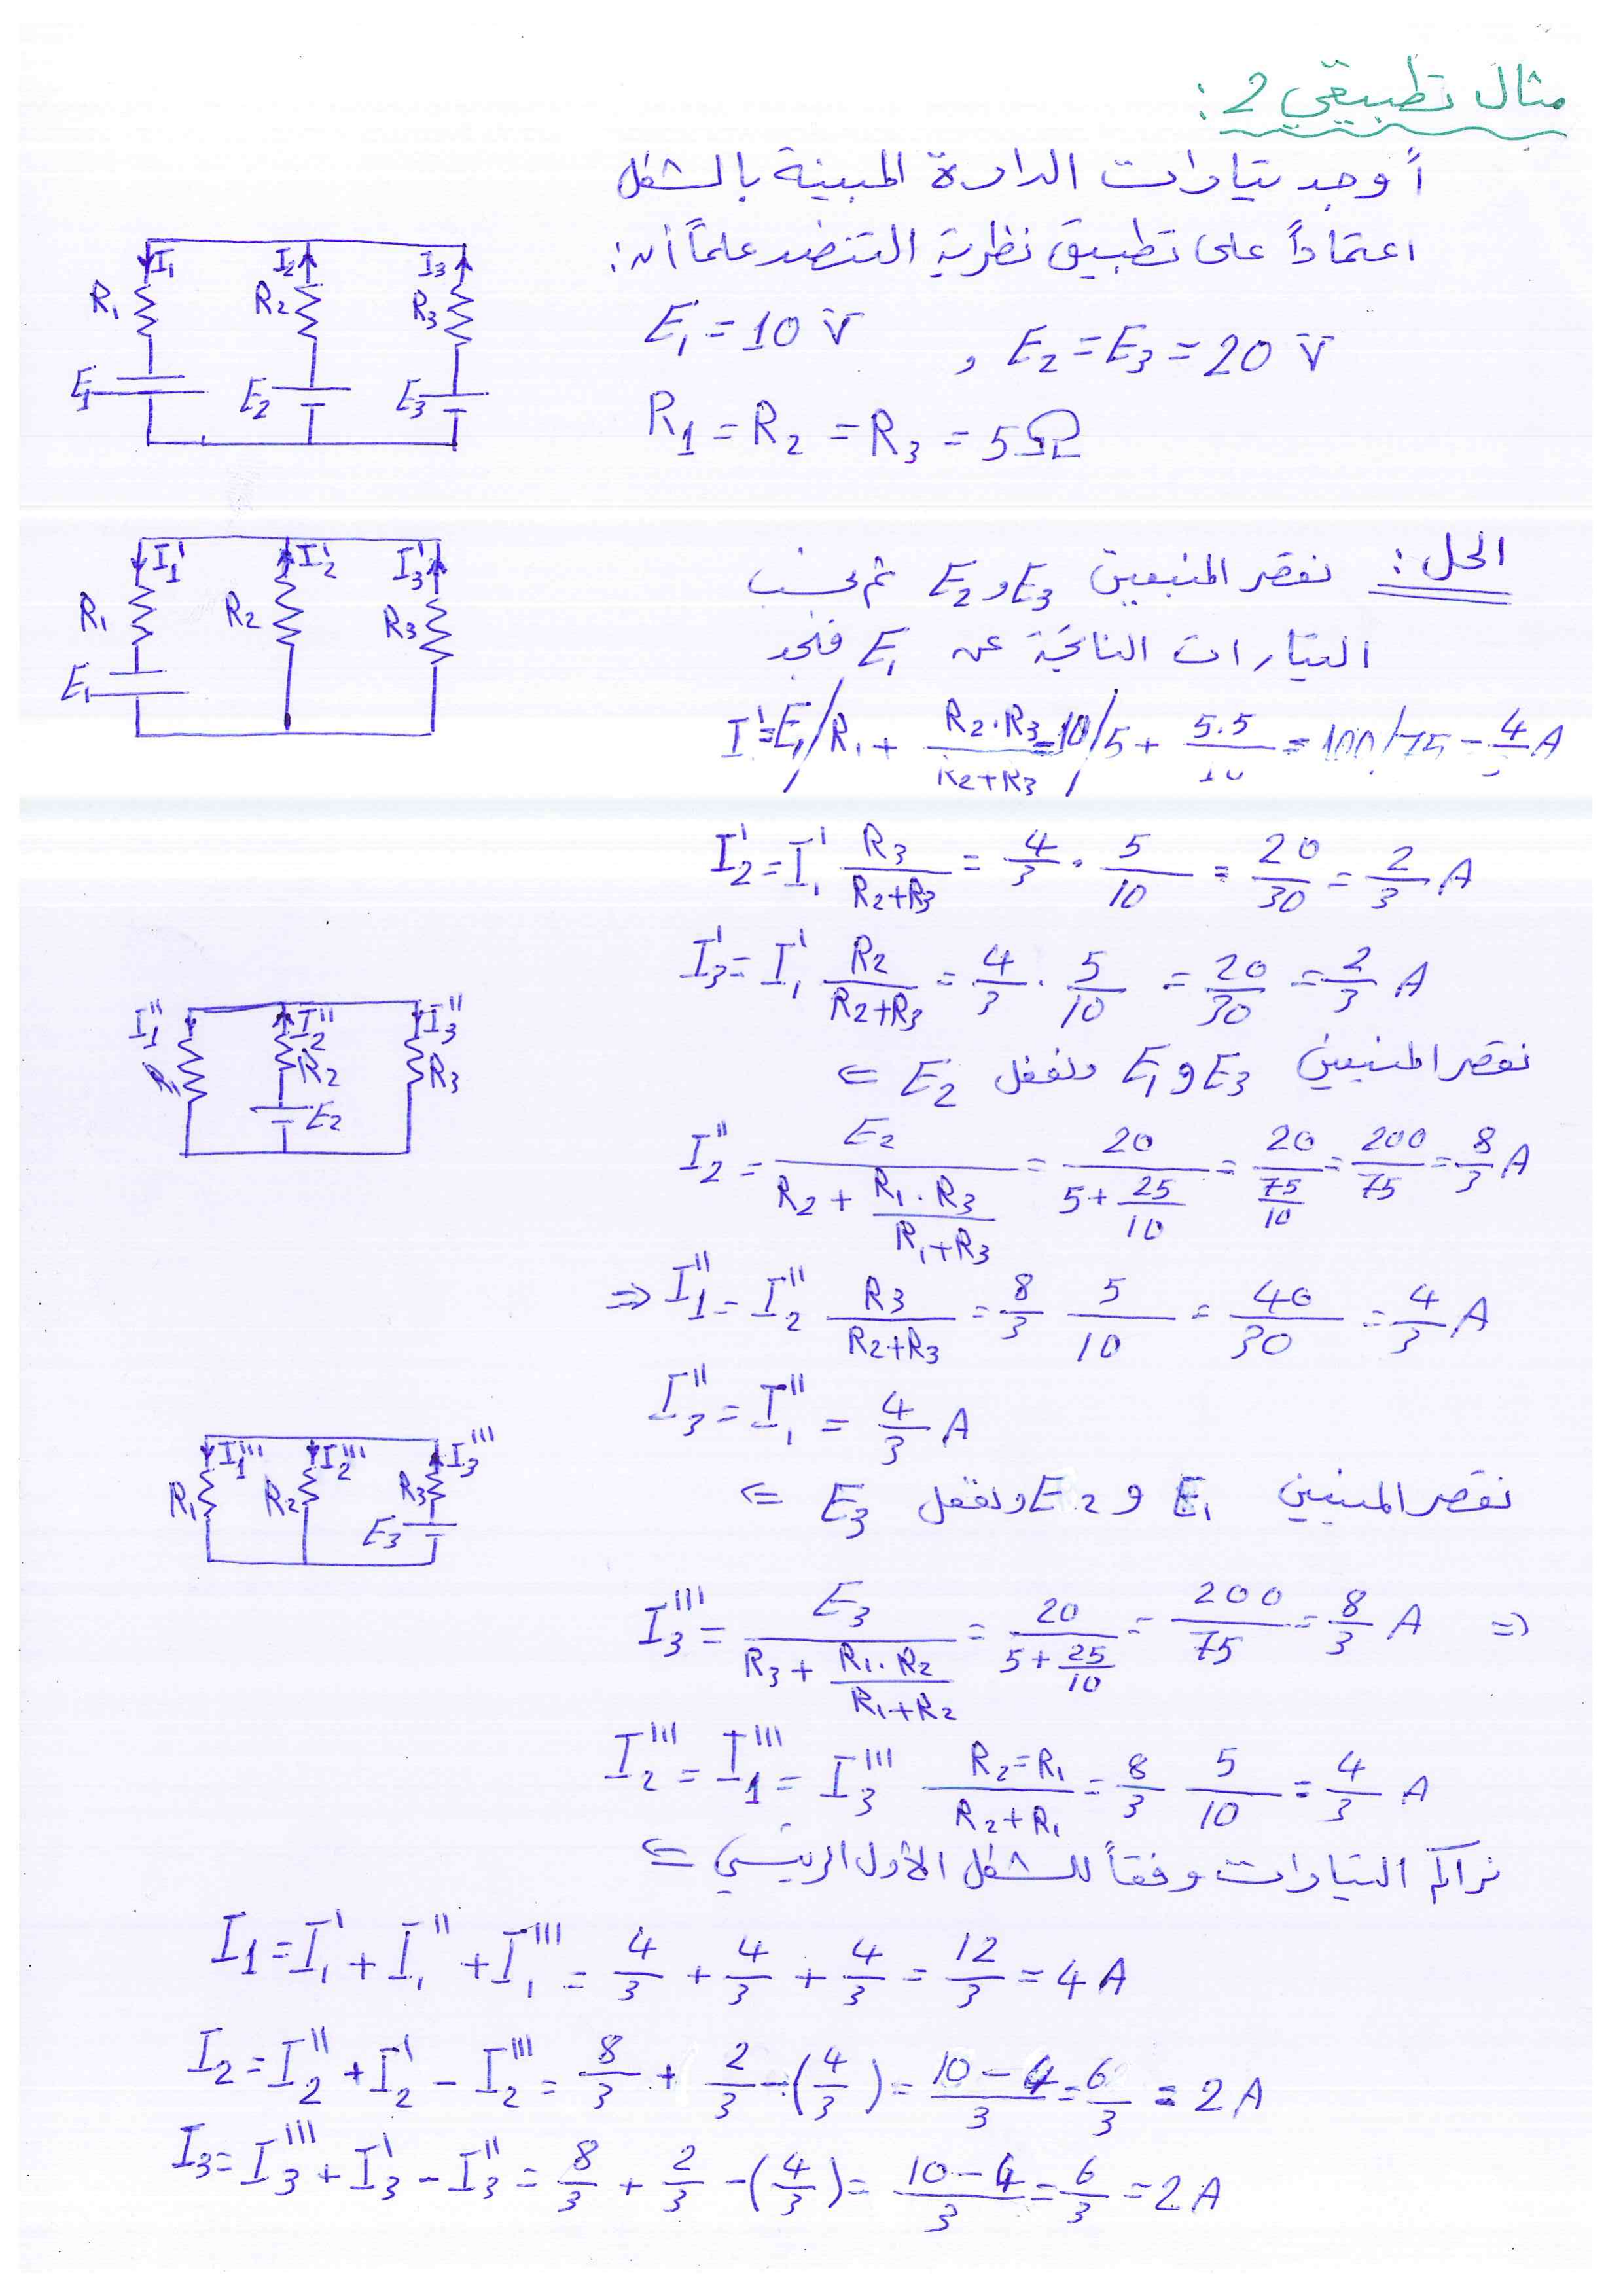 مثال تطبيقي 2 :
أوجد تيارات الدارة المبينة بالشكل
اعتماداً على تطبيق نظرية التنضد علماً أن :
E1 = 10 V , E2 = E3 = 20 V
R1 = R2 = R3 = 5Ω
I1 I2 I3
R1 R2 R3
E1 E2 E3
الحل : نقصر المنبعين E3 و E2 ثم نحسب
التيارات الناتجة عن E1 فنجد
I'1 I'2 I'3
R1 R2 R3
E1
I' = E1 / R1 + R2·R3/(R2+R3) = 10 / 5 + 5·5/10 = 100/75 = 4/3 A
I'2 = I'1 R3/(R2+R3) = 4/3 · 5/10 = 20/30 = 2/3 A
I'3 = I'1 R2/(R2+R3) = 4/3 · 5/10 = 20/30 = 2/3 A
نقصر المنبعين E3 و E1 ونفعل E2 ⇐
I''1 I''2 I''3
R1 R2 R3
E2
I''2 = E2/(R2 + R1·R3/(R1+R3)) = 20/(5 + 25/10) = 20/(75/10) = 200/75 = 8/3 A
⇒ I''1 = I''2 R3/(R2+R3) = 8/3 5/10 = 40/30 = 4/3 A
I''3 = I''1 = 4/3 A
نقصر المنبعين E1 و E2 ونفعل E3 ⇐
I'''1 I'''2 I'''3
R1 R2 R3
E3
I'''3 = E3/(R3 + R1·R2/(R1+R2)) = 20/(5 + 25/10) = 200/75 = 8/3 A ⇒
I'''2 = I'''1 = I'''3 (R2=R1)/(R2+R1) = 8/3 5/10 = 4/3 A
نراكم التيارات وفقاً للشكل الأول الرئيسي ⇐
I1 = I'1 + I''1 + I'''1 = 4/3 + 4/3 + 4/3 = 12/3 = 4 A
I2 = I''2 + I'2 - I'''2 = 8/3 + 2/3 - (4/3) = (10-4)/3 = 6/3 = 2 A
I3 = I'''3 + I'3 - I''3 = 8/3 + 2/3 - (4/3) = (10-4)/3 = 6/3 = 2 A